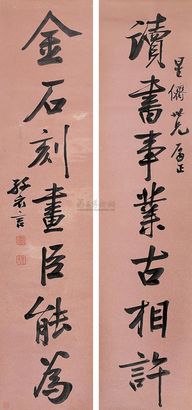 讀書事業古相許
星儕世兄屬正
金石刻畫臣能為
孫衣言